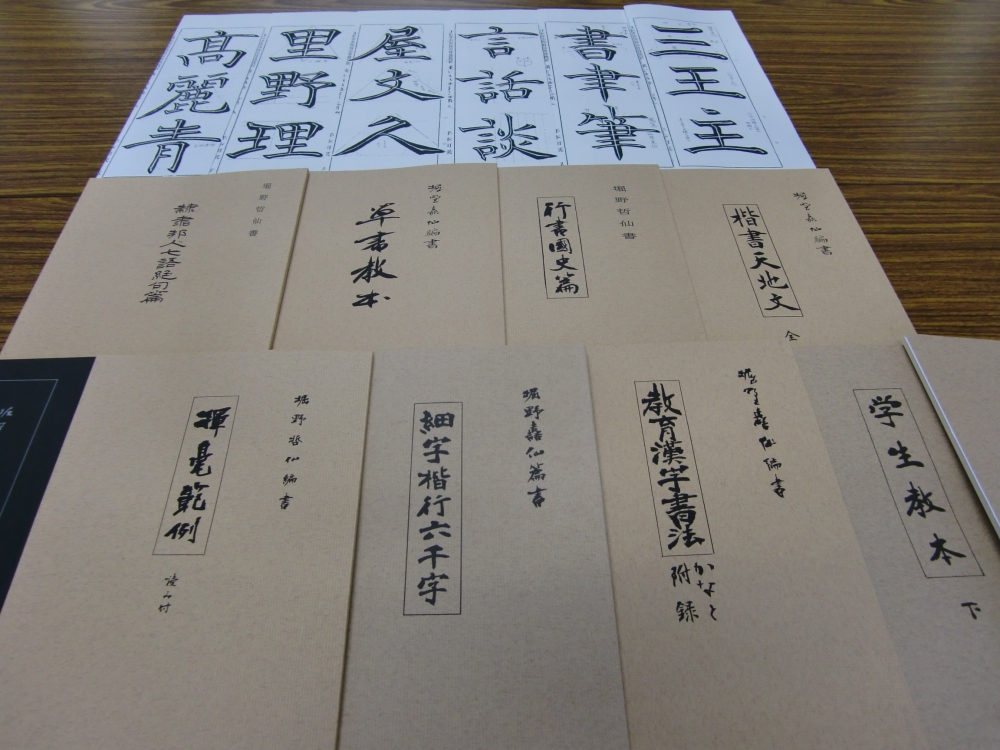 三王主
書聿筆
言話談
屋文久
里野理
髙麗青
堀野嚞仙編書
楷書天地文
全
堀野哲仙書
行書國史篇
堀野嚞仙編書
草書教本
堀野哲仙書
隷書邦人七語絶句篇
学生教本
下
堀野嚞仙編書
教育漢字書法
かなと
附録
堀野嚞仙篇書
細字楷行六千字
堀野哲仙編書
揮毫範例